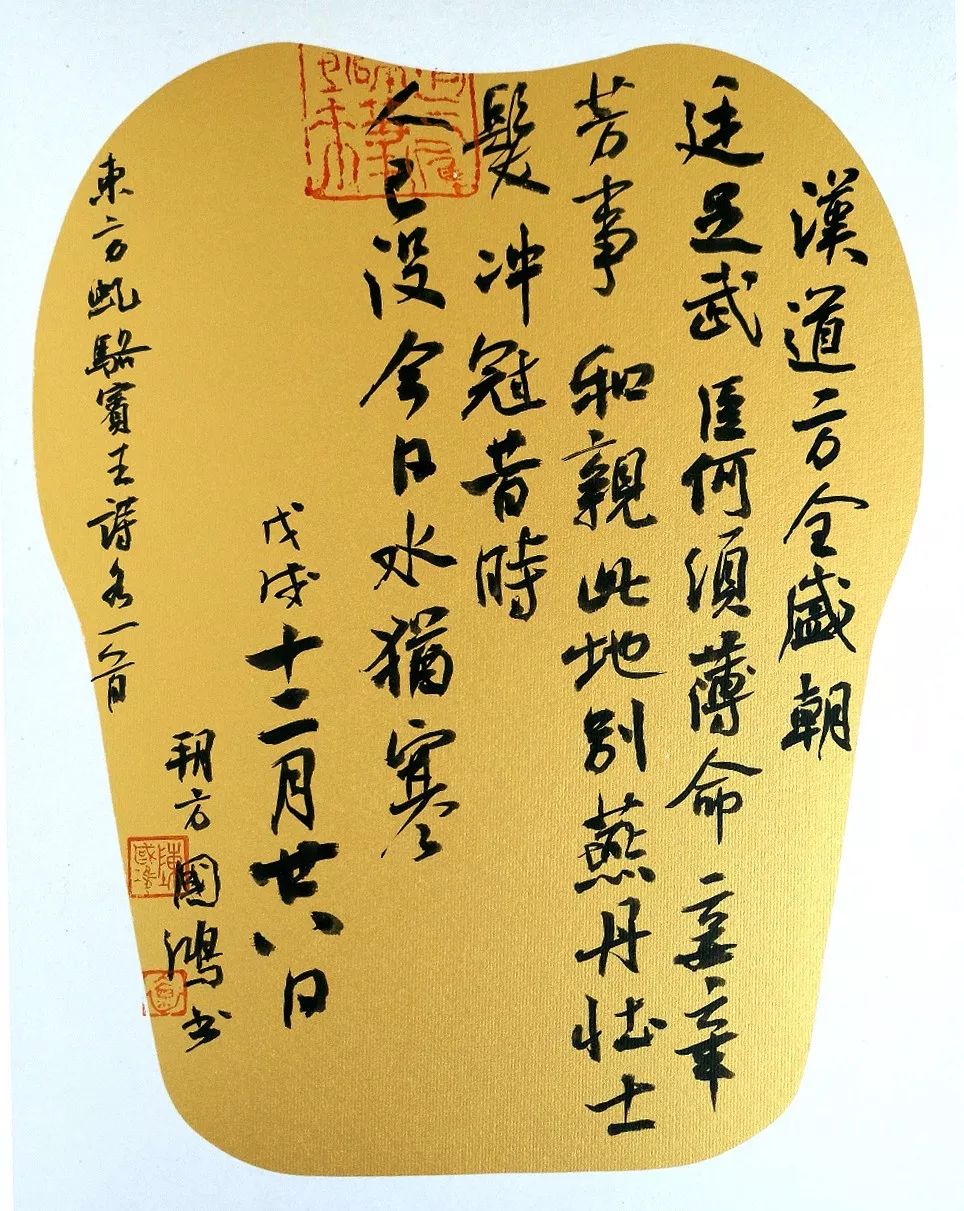 漢道方全盛朝
廷足武臣何須薄命妾辛
苦事和親此地别燕丹壮士
髮冲冠昔時
人已没今日水猶寒
戊戌十二月廿八日
東方虬駱賓王詩各一首
朔方國鴻书